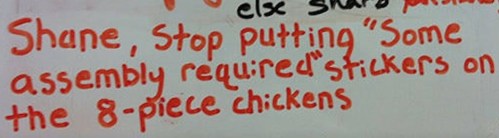 else share
Shane, Stop putting "Some
assembly required" stickers on
the 8-piece chickens